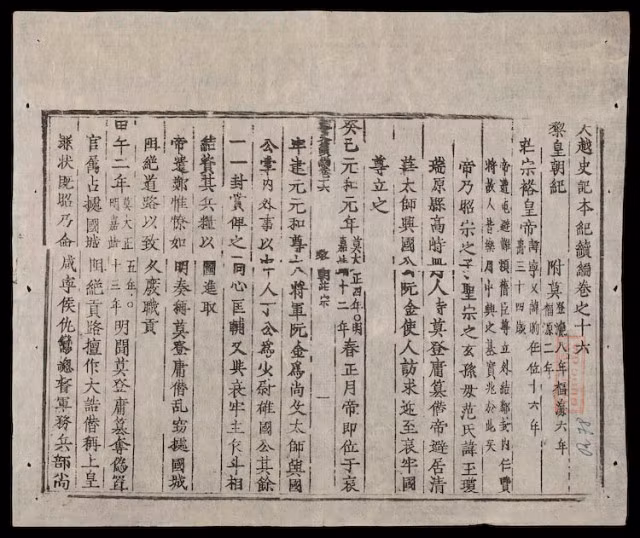 大越史記本紀續編卷之十六
黎皇朝紀 附莫 登瀛八年福海六年
福源二年
莊宗裕皇帝 在位十六年
壽三十四歲
帝遭屯避難賴舊臣尊立外結鄰封內仁賢
將故人皆樂用中興之基實兆於此矣
帝乃昭宗之子聖宗之玄孫母范氏諱玉瓊
瑞原縣高峙冊人時莫登庸篡僭帝避居清
華太師興國公阮金使人訪求迎至哀牢國
尊立之
癸巳元和元年 莫大正四年○明
嘉靖十二年 春正月帝即位于哀
黎朝莊宗 一
牢建元元和尊大將軍阮金爲尚父太師興國
公掌內外事以中人丁公爲少尉雄國公其餘
一一封賞俾之同心匡輔又與哀牢主乍斗相
結資其兵糧以圖進取
帝遣鄭惟憭如明奏稱莫登庸僭亂竊據國城
阻絕道路以致久廢職貢
甲午二年 莫大正五年○
明嘉靖十三年 明聞莫登庸篡奪僞置
官屬占據國城阻絕貢路擅作大誥僭稱上皇
罪狀既昭乃命咸寧侯仇鸞總督軍務兵部尚